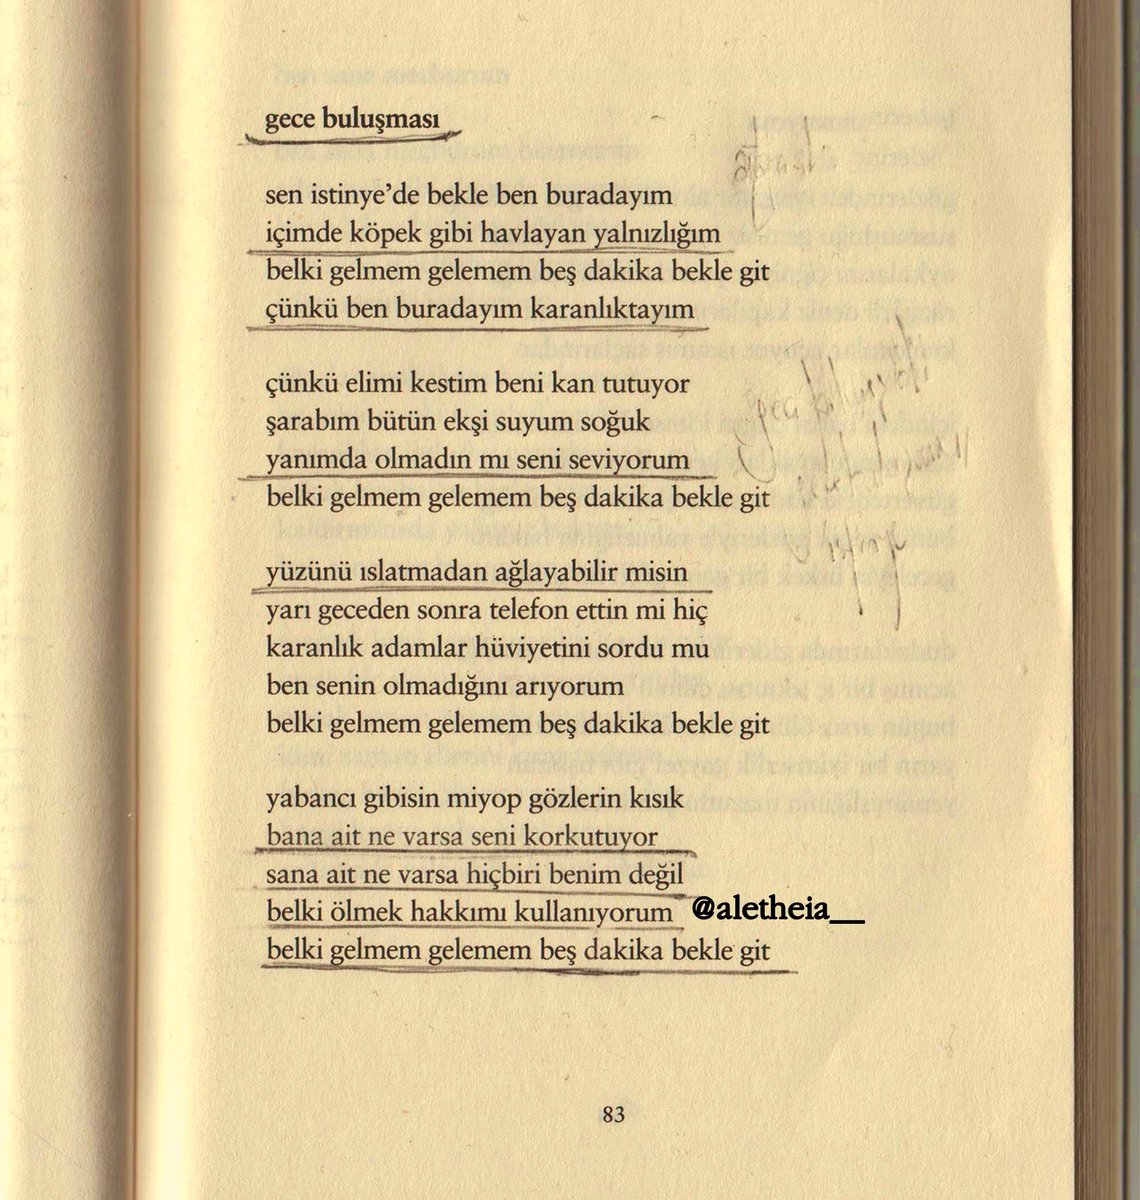 gece buluşması
sen istinye'de bekle ben buradayım
içimde köpek gibi havlayan yalnızlığım
belki gelmem gelemem beş dakika bekle git
çünkü ben buradayım karanlıktayım
çünkü elimi kestim beni kan tutuyor
şarabım bütün ekşi suyum soğuk
yanımda olmadın mı seni seviyorum
belki gelmem gelemem beş dakika bekle git
yüzünü ıslatmadan ağlayabilir misin
yarı geceden sonra telefon ettin mi hiç
karanlık adamlar hüviyetini sordu mu
ben senin olmadığını arıyorum
belki gelmem gelemem beş dakika bekle git
yabancı gibisin miyop gözlerin kısık
bana ait ne varsa seni korkutuyor
sana ait ne varsa hiçbiri benim değil
belki ölmek hakkımı kullanıyorum @aletheia__
belki gelmem gelemem beş dakika bekle git
83